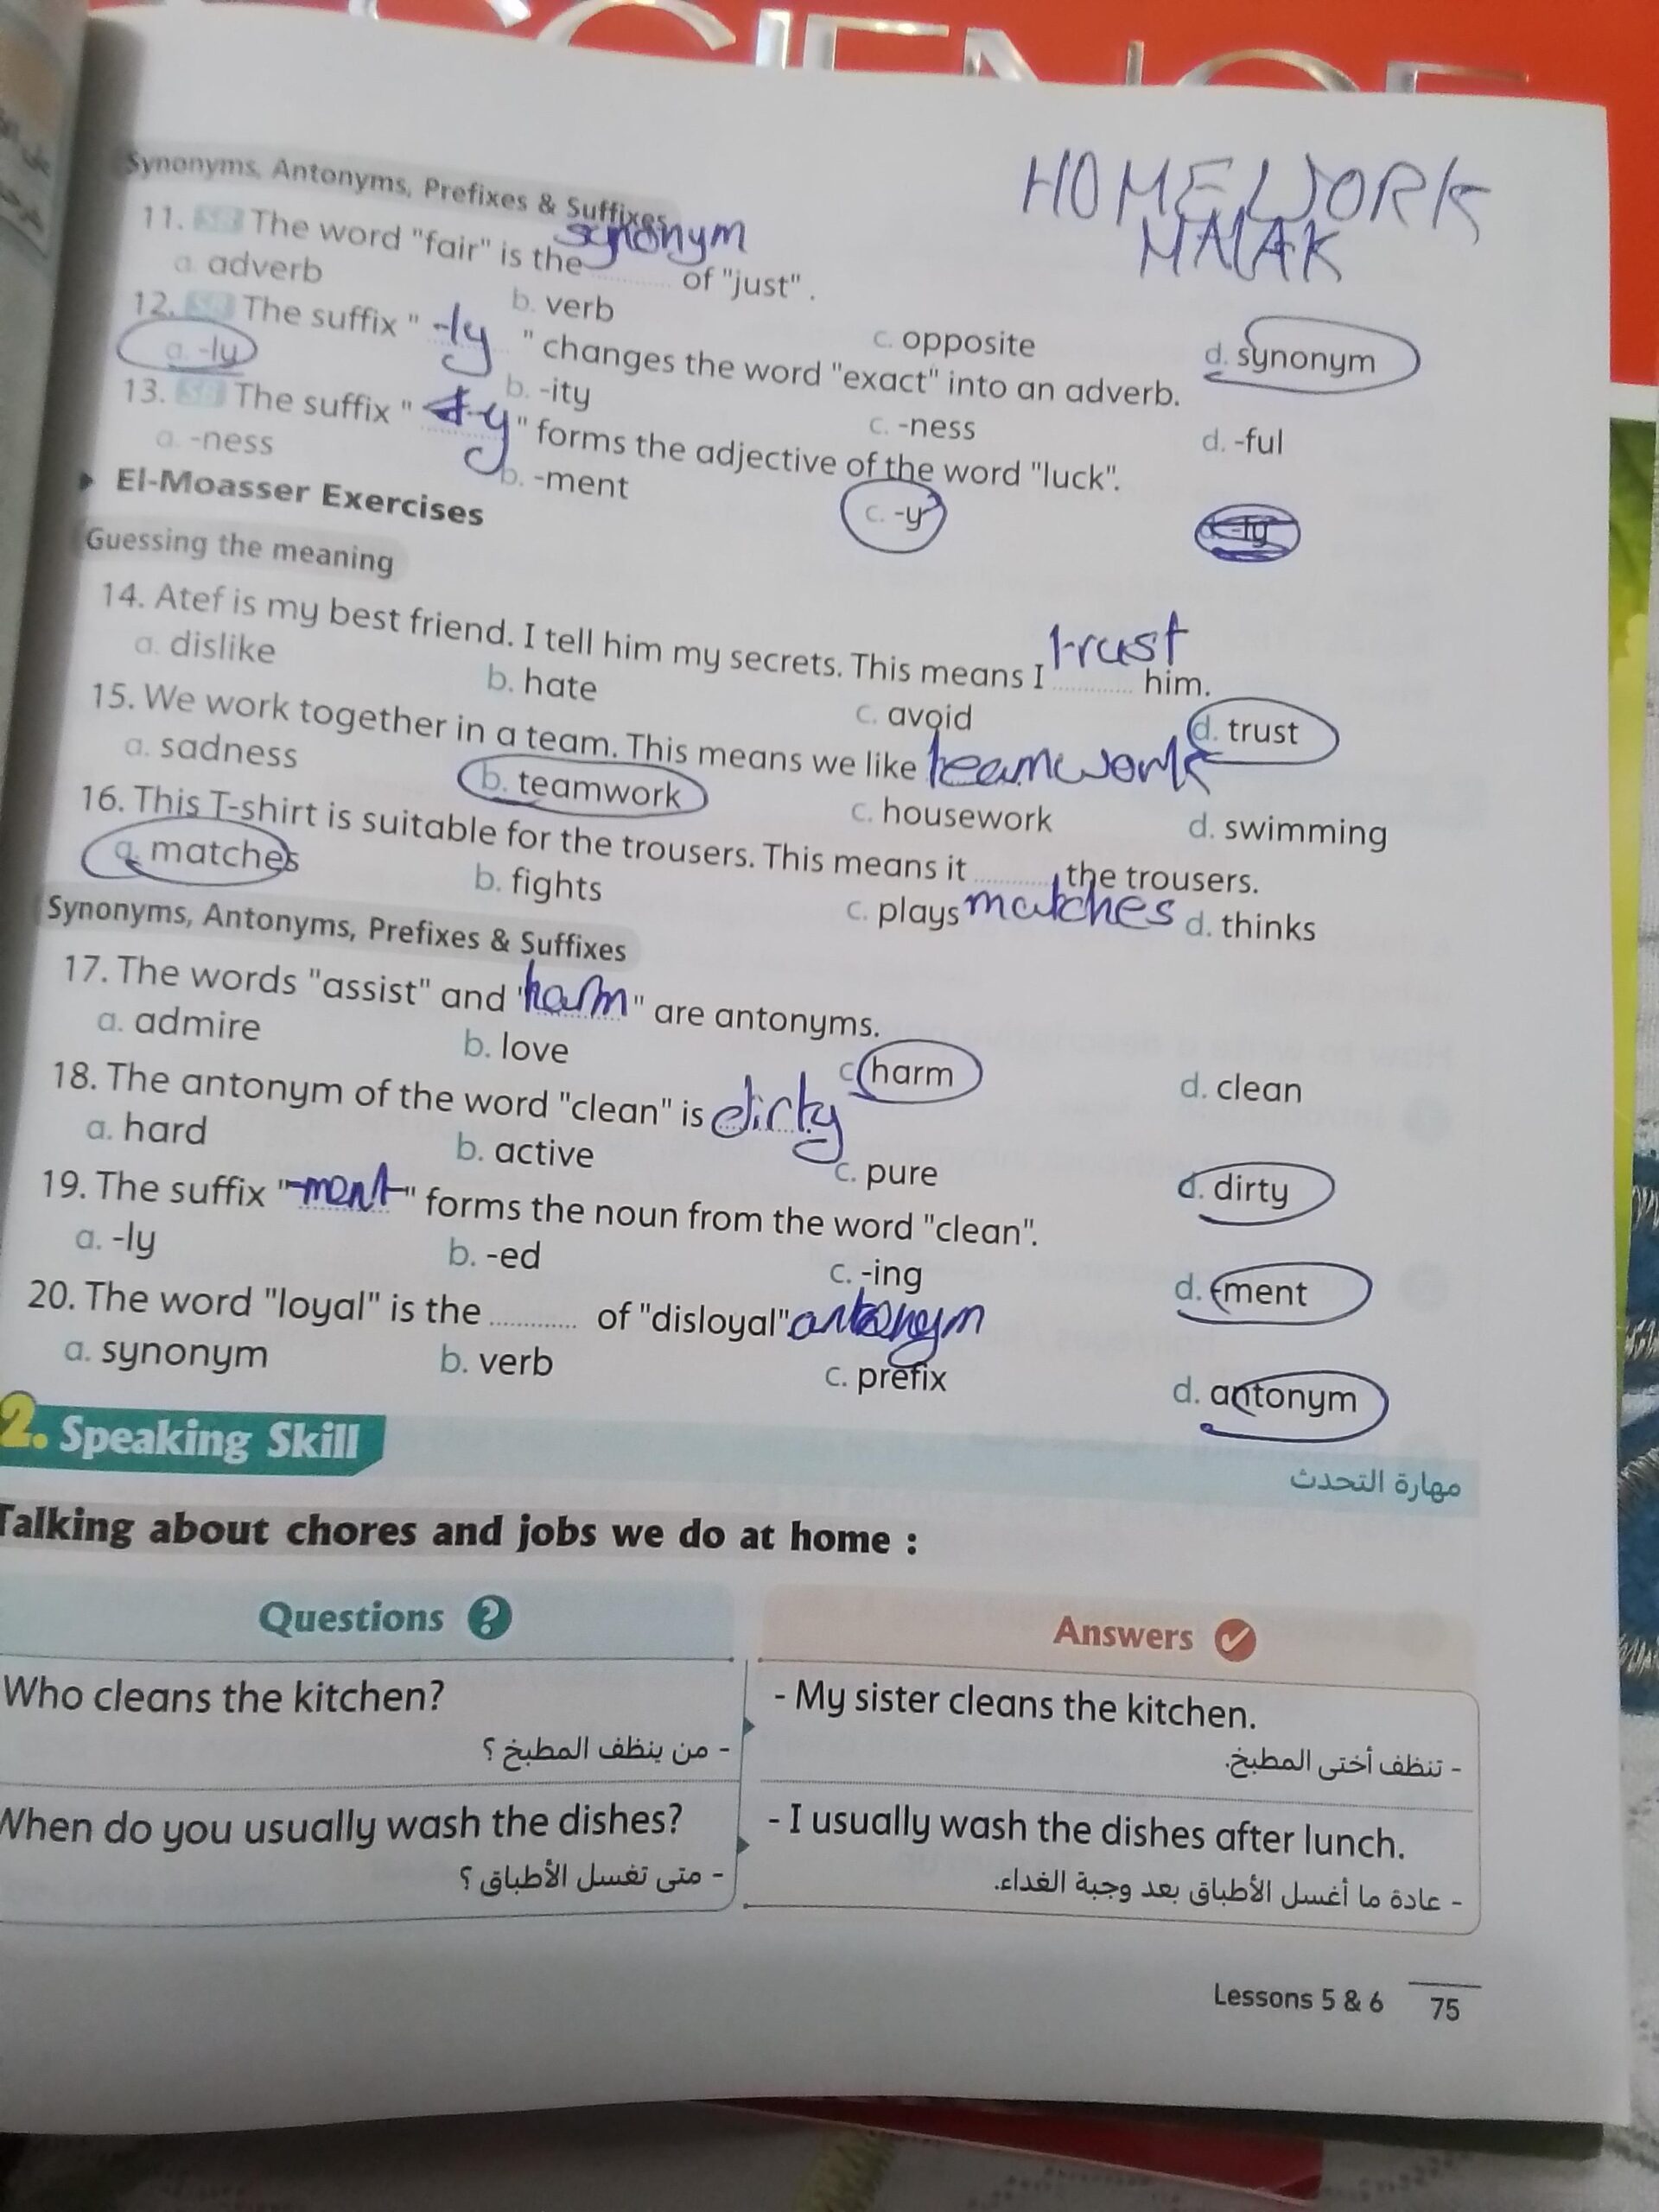 SCIENCE
HOMEWORK
MALAK
Synonyms, Antonyms, Prefixes & Suffixes
11. The word "fair" is the synonym of "just".
a. adverb b. verb c. opposite d. synonym
12. The suffix "-ly" changes the word "exact" into an adverb.
a. -ly b. -ity c. -ness d. -ful
13. The suffix "-y" forms the adjective of the word "luck".
a. -ness b. -ment c. -y d. -ly
El-Moasser Exercises
Guessing the meaning
14. Atef is my best friend. I tell him my secrets. This means I trust him.
a. dislike b. hate c. avoid d. trust
15. We work together in a team. This means we like teamwork
a. sadness b. teamwork c. housework d. swimming
16. This T-shirt is suitable for the trousers. This means it ............ the trousers.
a. matches b. fights c. plays matches d. thinks
Synonyms, Antonyms, Prefixes & Suffixes
17. The words "assist" and "harm" are antonyms.
a. admire b. love c. harm d. clean
18. The antonym of the word "clean" is dirty
a. hard b. active c. pure d. dirty
19. The suffix "-ment" forms the noun from the word "clean".
a. -ly b. -ed c. -ing d. -ment
20. The word "loyal" is the ............ of "disloyal". antonym
a. synonym b. verb c. prefix d. antonym
2. Speaking Skill مهارة التحدث
Talking about chores and jobs we do at home :
Questions ? Answers
Who cleans the kitchen? - My sister cleans the kitchen.
- من ينظف المطبخ ؟ - تنظف أختى المطبخ.
When do you usually wash the dishes? - I usually wash the dishes after lunch.
- متى تغسل الأطباق ؟ - عادة ما أغسل الأطباق بعد وجبة الغداء.
Lessons 5 & 6 75